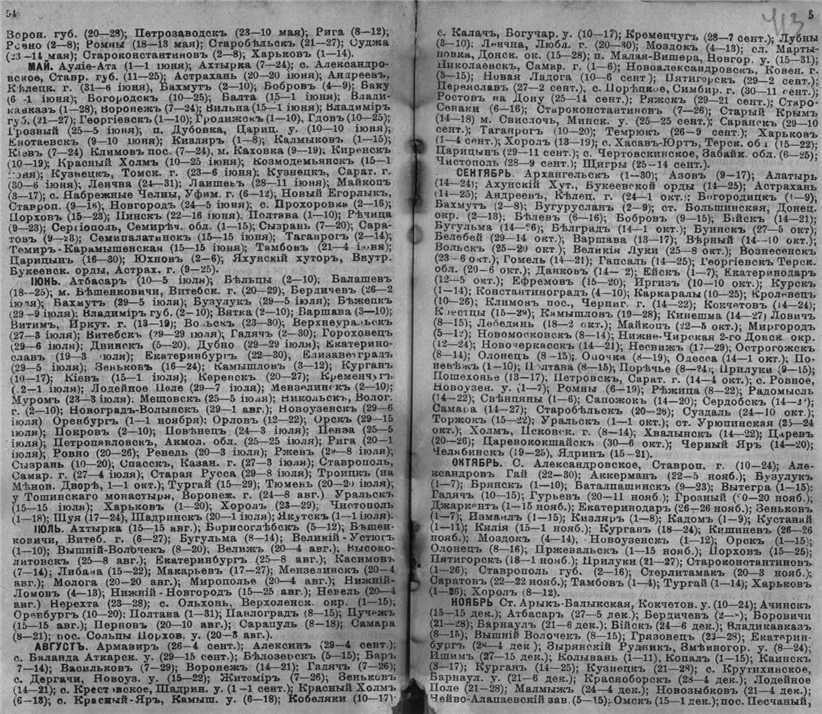 54
Ворон. губ. (20—28), Петрозаводскъ (23—10 мая), Рига (8—12),
Ровно (2—8), Ромны (18—13 мая), Старобѣльскъ (21—27), Суджа
(23—14 мая), Староконстантиновъ (2—8), Харьковъ (1—14).
МАЙ. Ауліе-Ата (1—1 іюня), Ахтырка (7—24), с. Александро-
вское, Ставр. губ. (11—25), Астрахань (20—20 іюня), Андреевъ,
Кѣлецк. г. (31—6 іюня), Бахмутъ (2—10), Бобровъ (4—9), Баку
(6—1 іюня), Богородскъ (10—25), Балта (15—1 іюня), Влади-
кавказъ (1—28), Воронежъ (7—24), Вильна (15—1 іюня), Владиміръ
губ. (21—27), Георгіевскъ (1—10), Гродискъ (1—10), Гдовъ (10—25),
Грозный (25—5 іюня), п. Дубовка, Цариц. у. (10—10 іюня),
Енотаевскъ (9—10 іюня), Кизляръ (1—8), Калмыковъ (1—15),
Кіевъ (7—24), Климовъ пос. (7—24), м. Каховка (9—19), Киренскъ
(10—19), Красный Холмъ (10—25 іюня), Козмодемьянскъ (15—1
іюня), Кузнецкъ, Томск. г. (23—6 іюня), Кузнецкъ, Сарат. г.
(30—6 іюня), Ленчна (24—31), Лаишевъ (28—11 іюня), Майкопъ
(3—17), с. Набрежные Челны, Уфим. г. (6—12), Новый Егорлыкъ,
Ставроп. (9—16), Новгородъ (24—5 іюня), с. Прохоровка (2—16),
Порховъ (15—23), Пинскъ (22—16 іюня), Полтава (1—10), Рѣчица
(9—23), Сергіополь, Семирѣч. обл. (1—15), Сызрань (7—20), Сара-
товъ (9—23), Семипалатинскъ (15—15 іюня), Таганрогъ (2—14),
Темиръ-Карамышевская (15—15 іюня), Тамбовъ (21—4 іюня),
Царицынъ (16—30), Юхновъ (2—6), Яхунскій хуторъ, Внутр.
Букеевск. орды, Астрах. г. (9—25).
ІЮНЬ. Атбасаръ (10—5 іюля), Бѣльцы (2—10), Балашевъ
(18—25), м. Бѣшенковичи, Витебск. г. (20—29), Бердичевъ (26—2
іюля), Бахмутъ (29—5 іюля), Бузулукъ (29—5 іюля), Бѣжецкъ
(29—9 іюля), Владиміръ губ. (2—10), Вятка (2—10), Варшава (3—10),
Витимъ, Иркут. г. (13—19), Вольскъ (23—30), Верхнеуральскъ
(27—3 іюля), Витебскъ (29—29 іюля), Гадячъ (2—30), Гороховецъ
(29—6 іюля), Двинскъ (5—20), Дубно (29—29 іюля), Екатерино-
славъ (19—3 іюля), Екатеринбургъ (22—30), Елизаветградъ
(29—5 іюля), Зеньковъ (16—24), Камышловъ (3—12), Курганъ
(10—17), Кіевъ (15—1 іюля), Керенскъ (20—27), Кременчугъ
(2—1 іюля), Лодейное Поле (29—7 іюля), Мензелинскъ (2—10),
Муромъ (23—3 іюля), Мещовскъ (25—5 іюля), Никольскъ, Волог.
г. (2—10), Новоградъ-Волынскъ (29—1 авг.), Новоузенскъ (29—6
іюля), Оренбургъ (1—1 ноября), Орловъ (12—22), Орскъ (29—15
іюля), Покровъ (2—10), Повѣнецъ (24—3 іюля), Пенза (25—5
іюля), Петропавловскъ, Акмол. обл. (25—25 іюля), Рига (20—1
іюля), Ровно (20—26), Ревель (20—3 іюля), Ржевъ (29—8 іюля),
Сызрань (10—20), Спасскъ, Казан. г. (27—3 іюля), Ставрополь,
Самар. г. (27—4 іюля), Старая Русса (29—8 іюля), Троицкъ (на
Мѣнов. Дворѣ, 1—1 окт.), Тургай (15—29), Тюмень (20—20 іюля),
у Тошинскаго монастыря, Воронеж. г. (24—8 авг.), Уральскъ
(15—15 іюля), Харьковъ (1—20), Хоролъ (23—29), Чистополь
(1—18), Шуя (17—24), Шадринскъ (20—1 іюля), Якутскъ (1—1 іюля).
ІЮЛЬ. Ахтырка (15—15 авг.), Борисоглѣбскъ (5—12), Бѣшен-
ковичи, Витеб. г. (6—27), Бугульма (8—14), Великій-Устюгъ
(1—10), Вышній-Волочекъ (8—20), Велижъ (20—4 авг.), Высоко-
литовскъ (25—8 авг.), Екатеринбургъ (25—8 авг.), Касимовъ
(7—14), Либава (15—22), Макарьевъ (17—27), Мензелинскъ (20—4
авг.), Молога (20—20 авг.), Мирополье (20—4 авг.), Нижній-
Ломовъ (4—13), Нижній-Новгородъ (15—25 авг.), Невель (20—4
авг.), Нерехта (23—28), с. Ольхонь, Верхоленск. окр. (1—15),
Оренбургъ (10—20), Полтава (1—31), Павлоградъ (8—15), Пучежъ
(15—15 авг.), Перновъ (20—10 авг.), Сарапуль (8—18), Самара
(8—21), пос. Сольцы Порхов. у. (20—3 авг.).
АВГУСТЪ. Армавиръ (26—4 сент.), Алексинъ (29—4 сент.),
с. Баланда Аткарск. у. (29—15 сент.), Бѣлозерскъ (5—15), Баръ
(7—14), Васильковъ (7—29), Воронежъ (14—21), Гадячъ (7—26),
с. Дергачи, Новоуз. у. (15—22), Житоміръ (7—26), Зеньковъ
(14—21), с. Крестовское, Шадрин. у. (1—1 сент.), Красный Холмъ
(6—13), с. Красный-Яръ, Камыш. у. (6—18), Кобеляки (10—17)
5
413
с. Калачъ, Богучар. у. (10—17), Кременчугъ (28—7 сент.), Лубны
(3—10), Ленчна, Любл. г. (20—30), Моздокъ (4—13), сл. Марты-
новка, Донск. ок. (15—28), п. Малая-Вишера, Новгор. у. (15—31),
Николаевскъ, Самар. г. (1—8), Новоалександровскъ, Ковен. г.
(5—15), Новая Ладога (10—6 сент.), Пятигорскъ (29—2 сент.),
Переяславъ (27—2 сент.), с. Порѣцкое, Симбир. г. (30—11 сент.),
Ростовъ на Дону (25—14 сент.), Ряжскъ (29—21 сент.), Старо-
Сенаки (6—16), Староконстантиновъ (7—26), Старый Крымъ
(14—18), м. Свислочь, Минск. у. (25—25 сент.), Саранскъ (29—10
сент.), Таганрогъ (10—20), Темрюкъ (26—9 сент.), Харьковъ
(1—4 сент.), Хоролъ (13—19), с. Хасавъ-Юртъ, Терск. обл. (15—22),
Царицынъ (29—11 сент.), с. Чертовскинское, Забайк. обл. (6—25),
Чистополь (28—9 сент.), Щигры (25—14 сент.).
СЕНТЯБРЬ. Архангельскъ (1—30), Азовъ (9—17), Алатырь
(14—24), Ахунскій Хут., Букеевской орды (14—25), Астрахань
(14—25), Андреевъ, Кѣлец. г. (24—1 окт.), Богородицкъ (1—9),
Бахмутъ (2—8), Бугурусланъ (2—9), ст. Большинская, Донец.
окр. (2—13), Бѣлевъ (6—16), Бобровъ (9—15), Бійскъ (14—21),
Бугульма (14—26), Бѣлградъ (14—1 окт.), Буинскъ (27—5 окт),
Белебей (29—14 окт.), Варшава (13—17), Вѣрный (14—10 окт.),
Вольскъ (25—20 окт.), Великія Луки (25—8 окт.), Вознесенскъ
(23—6 окт.), Гомель (14—21), Гапсаль (14—25), Георгіевскъ Терск.
обл. (20—6 окт.), Данковъ (14—2), Ейскъ (1—7), Екатеринодаръ
(12—5 окт.), Ефремовъ (15—20), Иргизъ (10—10 окт.), Курскъ
(1—14), Константиноградъ (4—10), Каркаралы (10—25), Кролевецъ
(10—26), Климовъ пос., Черниг. г. (14—22), Кокчетовъ (14—24),
Крестцы (15—29), Камышловъ (19—28), Кинешма (14—27), Ловичъ
(8—15), Лебедянь (18—2 окт.), Майкопъ (22—5 окт.), Миргородъ
(5—12), Новомосковскъ (8—14), Нижне-Чирская 2-го Донск. окр.
(12—24), Новочеркаскъ (14—21), Несвижъ (17—29), Острогожскъ
(8—14), Олонецъ (8—15), Опочка (8—19), Одесса (14—1 окт.), По-
невѣжъ (1—10), Полтава (8—15), Порѣчье (8—24), Прилуки (9—15),
Пошехонье (13—17), Петровскъ, Сарат. г. (14—4 окт.), с. Ровное,
Новоузен. у. (1—7), Ромны (6—19), Рѣжица (8—22), Радомысль
(14—22), Свѣнцяны (1—6), Сапожокъ (14—20), Сердобскъ (14—21),
Самара (14—27), Старобѣльскъ (20—26), Суздаль (24—10 окт.),
Торжокъ (15—22), Уральскъ (1—1 окт.), ст. Урюпинская (25—24
окт.), Холмъ, Псковск. г. (8—14), Хвалынскъ (14—22), Царевъ
(20—26), Царевококшайскъ (30—6 окт.), Черный Яръ (14—20),
Челябинскъ (19—25), Ядринъ (15—21).
ОКТЯБРЬ. С. Александровское, Ставроп. г. (10—24), Але-
ксандровъ Гай (22—30), Аккерманъ (22—5 нояб.), Бузулукъ
(1—7), Брянскъ (1—10), Баталпашинскъ (9—23), Вытегра (1—15),
Гадячъ (10—15), Гурьевъ (20—11 нояб.), Грозный (20—20 нояб.),
Джаркентъ (1—15 нояб.), Екатеринодаръ (26—26 нояб.), Зеньковъ
(1—7), Измаилъ (1—15), Кизляръ (1—8), Кадомъ (1—9), Кустанай
(1—11), Килія (15—1 нояб.), Курганъ (18—24), Кишиневъ (26—26
нояб.), Моздокъ (4—14), Новоузенскъ (1—12), Орскъ (1—15),
Олонецъ (8—16), Пржевальскъ (1—15 нояб.), Порховъ (15—25),
Пятигорскъ (18—1 нояб.), Прилуки (21—27), Староконстантиновъ
(1—26), Ставрополь губ. (2—16), Стерлитамакъ (20—3 нояб.),
Саратовъ (22—22 нояб.), Тамбовъ (1—4), Тургай (1—14), Харьковъ
(1—26), Хоролъ (8—12).
НОЯБРЬ. Ст. Арыкъ-Балыкская, Кокчетов. у. (10—24), Ачинскъ
(15—15 дек.), Атбасаръ (27—5 дек.), Бердичевъ (2—), Воровичи
(21—28), Барнаулъ (21—6 дек.), Бійскъ (24—6 дек.), Владикавказъ
(8—15), Вышній Волочекъ (8—15), Грязовецъ (23—28), Екатерин-
бургъ (28—4 дек.), Зырянскій Рудникъ, Змѣиногор. у. (8—24),
Ишимъ (27—15 дек.), Колывань (1—11), Копалъ (1—15), Каинскъ
(8—17), Курганъ (14—25), Кузнецкъ (21—28), с. Крутихинское,
Барнаул. у. (21—6 дек.), Красноборскъ (28—4 дек.), Лодейное
Поле (21—28), Малмыжъ (24—4 дек.), Новозыбковъ (21—4 дек.),
Чейво-Алапаевскій зав. (5—15), Омскъ (15—1 дек.), пос. Песчаный,